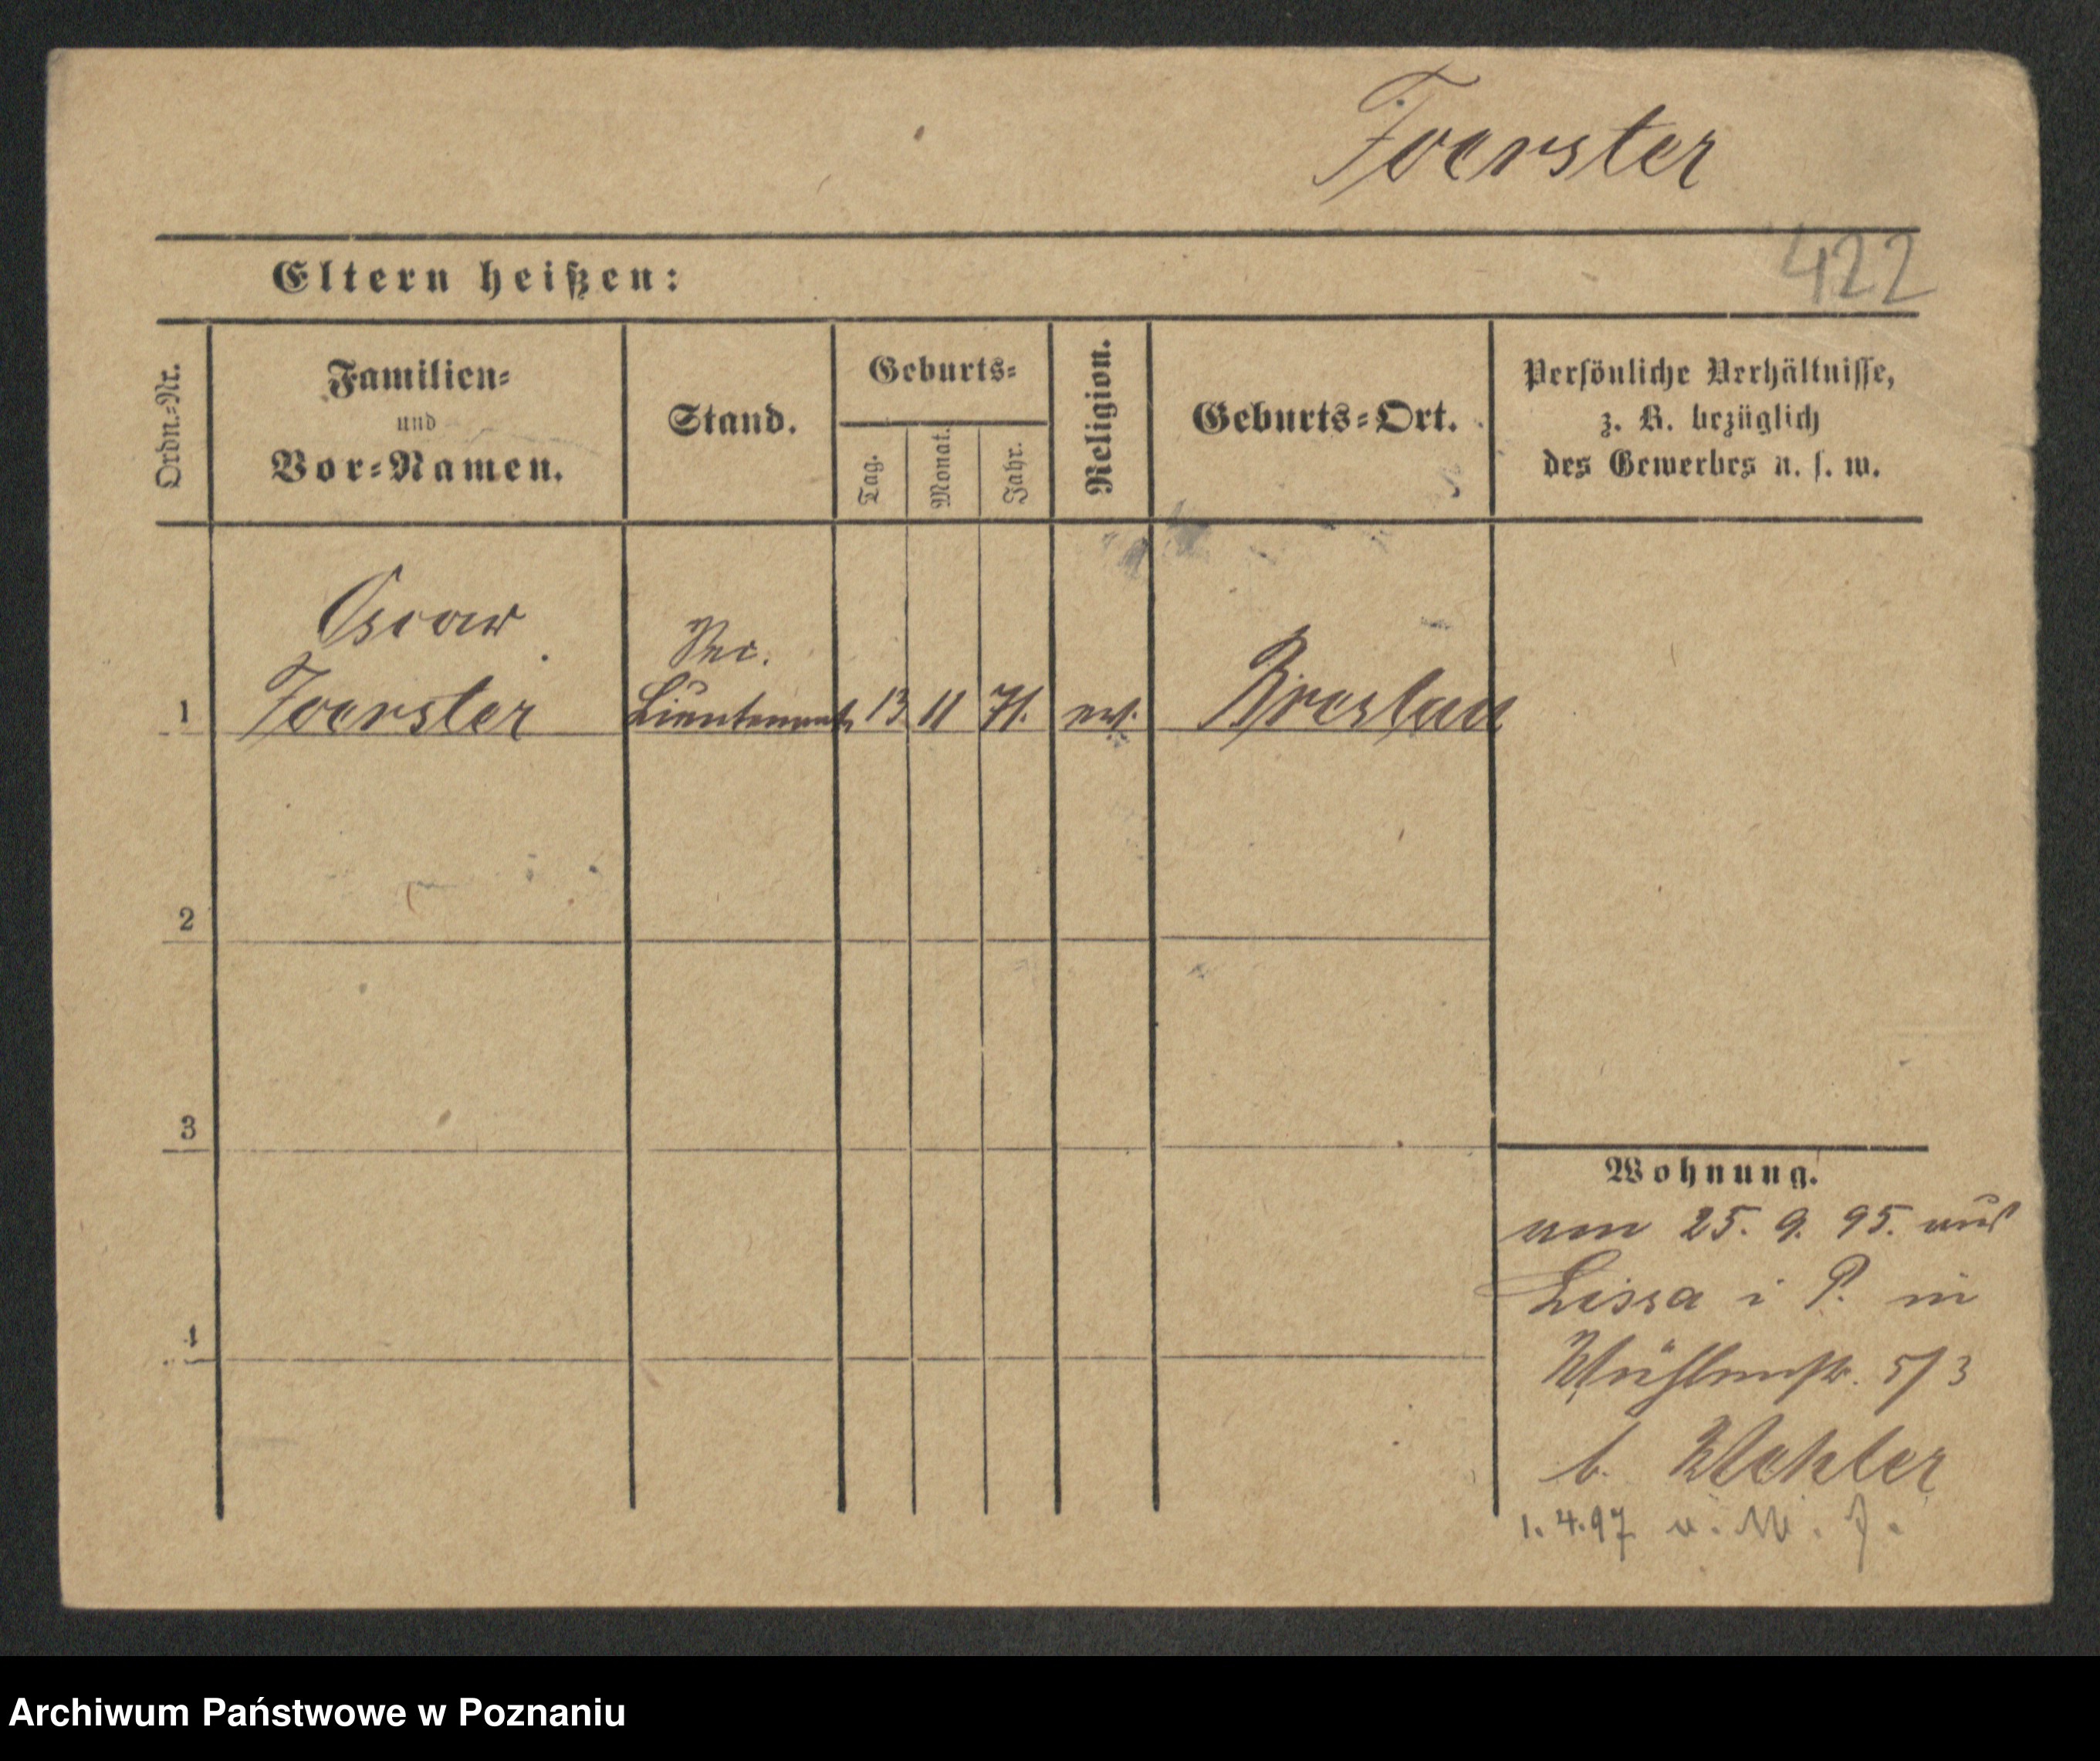 Foerster
422
Eltern heißen:
Ordn.=Nr.
Familien=
und
Vor=Namen.
Stand.
Geburts=
Tag.
Monat.
Jahr.
Religion.
Geburts=Ort.
Persönliche Verhältnisse,
z. B. bezüglich
des Gewerbes u. s. w.
Oscar
Foerster
Sec.
Lieutenant
1
13
11
71.
ev.
Breslau
2
3
4
Wohnung.
am 25. 9. 95. aus
Lissa i P. in
Mühlenstr. 5/3
b.
1. 4. 97
Archiwum Państwowe w Poznaniu